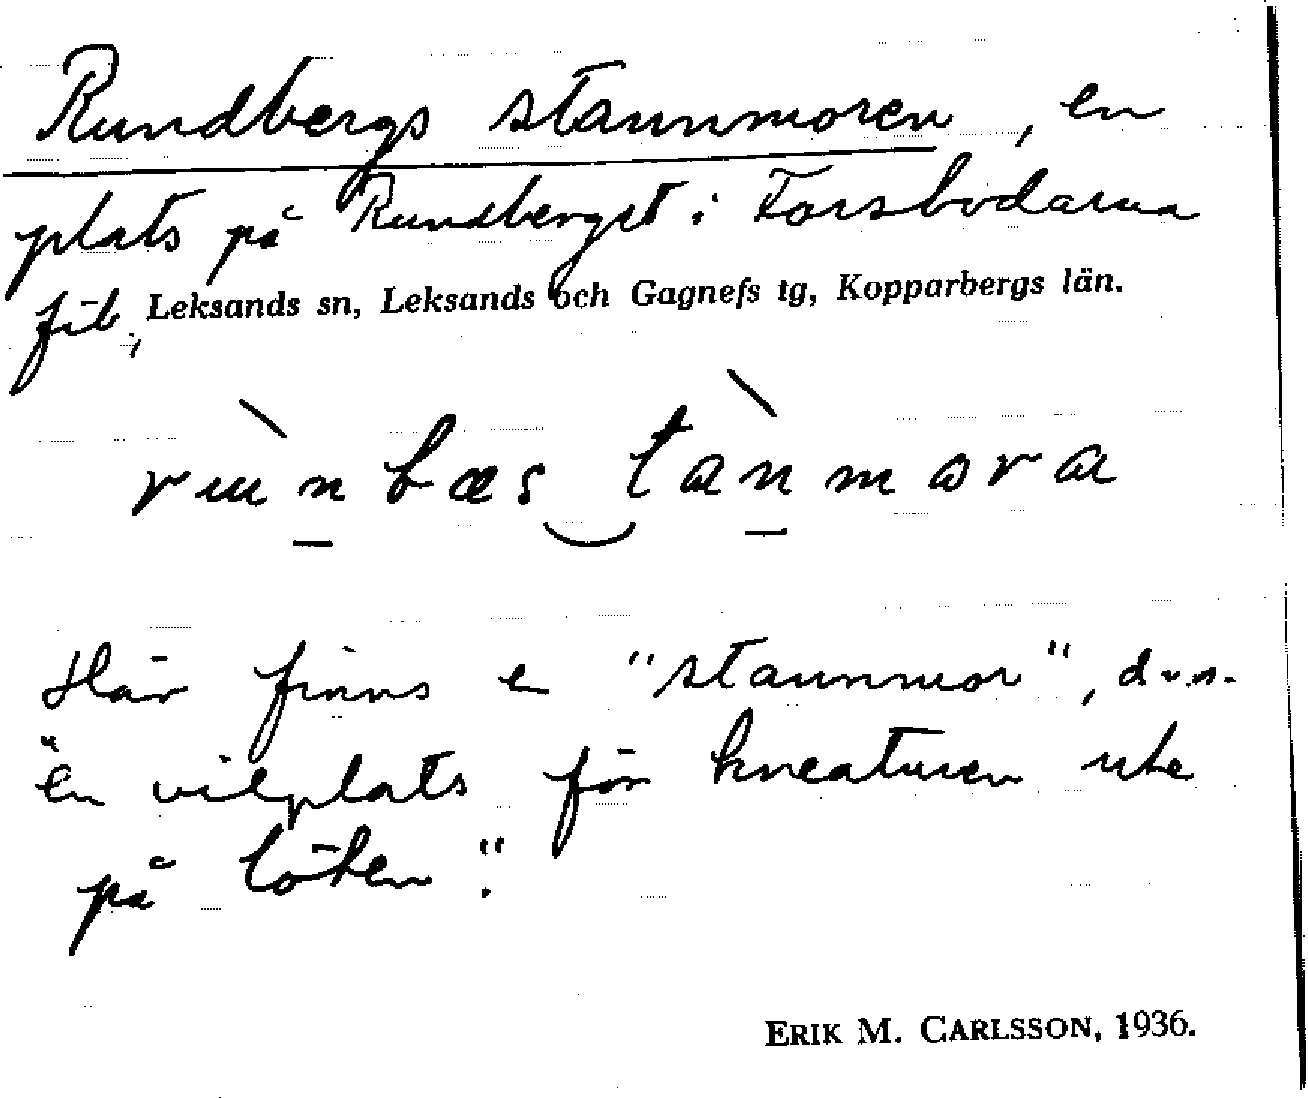 Rundbergs staunmoren, en
plats på Rundberget i Forsbodarna
fäb,
Leksands sn, Leksands och Gagnefs tg, Kopparbergs län.
Här finns en "staunmor", d.v.s.
"en vilplats för kreaturen ute
på löten".
ERIK M. CARLSSON, 1936.